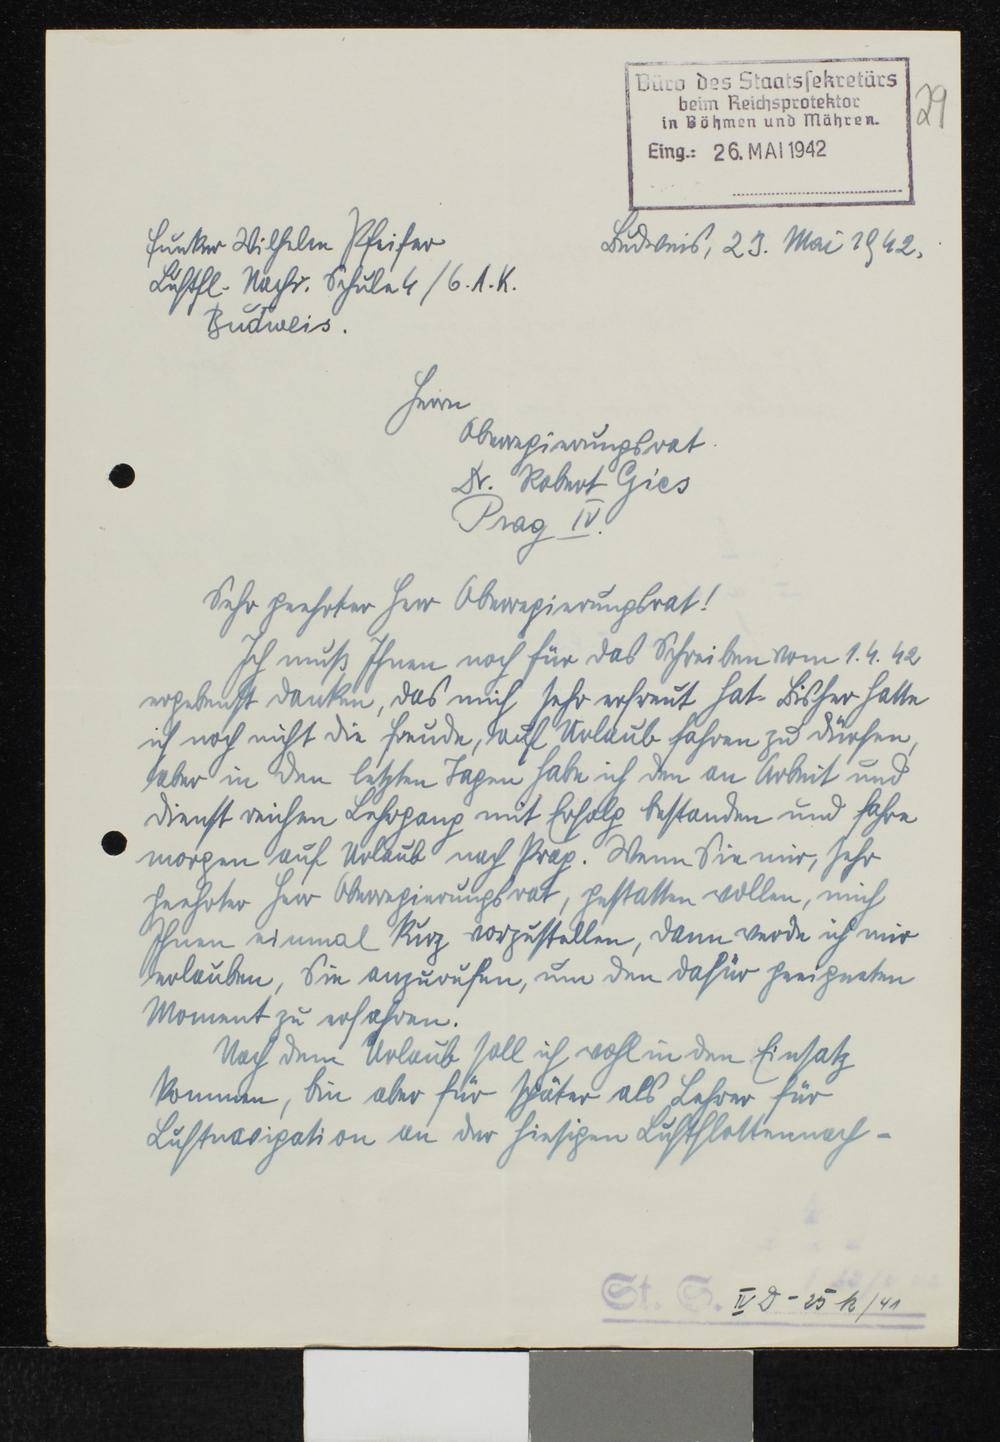 Büro des Staatssekretärs
beim Reichsprotektor
in Böhmen und Mähren.
Eing.: 26. MAI 1942
29
Funker Wilhelm Pfeifer
Luftfl. Nachr. Schule 4 / 6. A. K.
Budweis.
Budweis, 23. Mai 1942.
Herrn
Oberregierungsrat
Dr. Robert Gies
Prag IV.
Sehr geehrter Herr Oberregierungsrat!
Ich muß Ihnen noch für das Schreiben vom 1.4.42
ergebenst danken, das mich sehr erfreut hat. Bisher hatte
ich noch nicht die Freude, auf Urlaub fahren zu dürfen,
aber in den letzten Tagen habe ich den an Arbeit und
Dienst reichen Lehrgang mit Erfolg bestanden und fahre
morgen auf Urlaub nach Prag. Wenn Sie mir, sehr
geehrter Herr Oberregierungsrat, gestatten wollen, mich
Ihnen einmal kurz vorzustellen, dann werde ich mir
erlauben, Sie anzurufen, um den dafür geeigneten
Moment zu erfahren.
Nach dem Urlaub soll ich wohl in den Einsatz
kommen, bin aber für später als Lehrer für
Luftnavigation an der hiesigen Luftflottennach-
St. S. IV D - 25 k/41